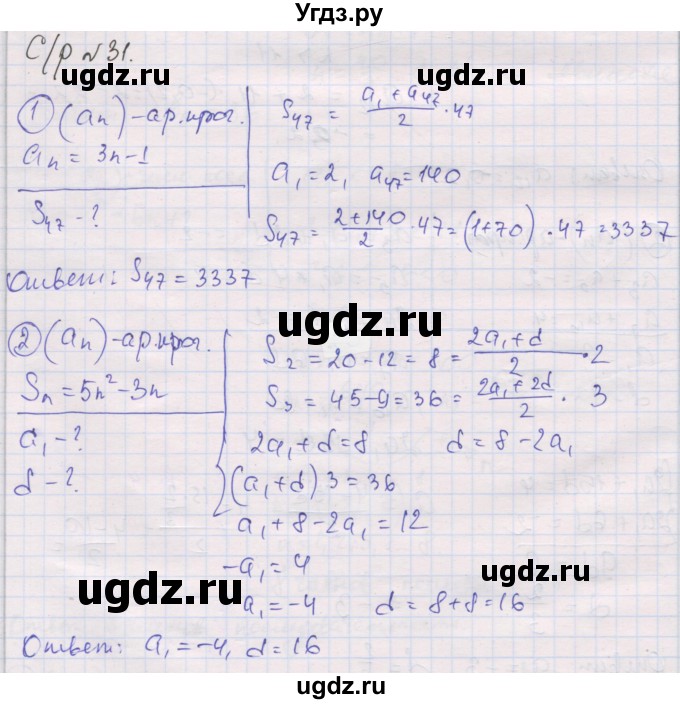 Угдз.ру
С/р №31.
ugdz.ru
ugdz.ru
① (aₙ) – ар. прог.
aₙ = 3n-1
S₄₇ – ?
S₄₇ = (a₁ + a₄₇)/2 · 47
a₁ = 2, a₄₇ = 140
S₄₇ = (2+140)/2 · 47 = (1+70) · 47 = 3337
Ответ: S₄₇ = 3337
ugdz.ru
② (aₙ) – ар. прог.
Sₙ = 5n² – 3n
a₁ – ?
d – ?
S₂ = 20 - 12 = 8 = (2a₁ + d)/2 · 2
S₃ = 45 - 9 = 36 = (2a₁ + 2d)/2 · 3
2a₁ + d = 8 d = 8 - 2a₁
(a₁ + d) 3 = 36
a₁ + 8 - 2a₁ = 12
-a₁ = 4
a₁ = -4 d = 8 + 8 = 16
ugdz.ru
ugdz.ru
Ответ: a₁ = -4, d = 16
ugdz.ru